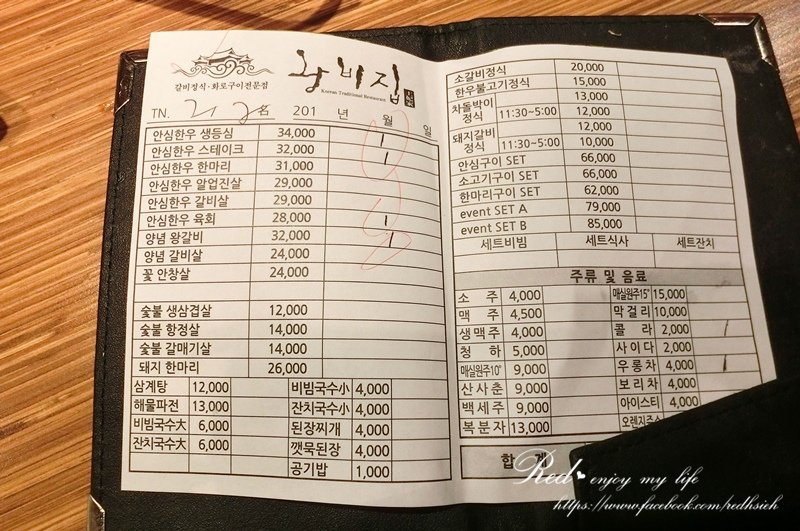 왕비집
Korean Traditional Restaurant
갈비정식·화로구이전문점
TN. 名 201 년 월 일
안심한우 생등심 34,000
안심한우 스테이크 32,000
안심한우 한마리 31,000
안심한우 알업진살 29,000
안심한우 갈비살 29,000
안심한우 육회 28,000
양념 왕갈비 32,000
양념 갈비살 24,000
꽃 안창살 24,000
숯불 생삼겹살 12,000
숯불 항정살 14,000
숯불 갈매기살 14,000
돼지 한마리 26,000
삼계탕 12,000 비빔국수小 4,000
해물파전 13,000 잔치국수小 4,000
비빔국수大 6,000 된장찌개 4,000
잔치국수大 6,000 깻묵된장 4,000
공기밥 1,000
소갈비정식 20,000
한우불고기정식 15,000
차돌박이정식 13,000
11:30~5:00 12,000
돼지갈비정식 12,000
11:30~5:00 10,000
안심구이 SET 66,000
소고기구이 SET 66,000
한마리구이 SET 62,000
event SET A 79,000
event SET B 85,000
세트비빔 세트식사 세트잔치
주류 및 음료
소 주 4,000 매실원주15° 15,000
맥 주 4,500 막걸리 10,000
생맥주 4,000 콜 라 2,000
청 하 5,000 사이다 2,000
매실원주10° 9,000 우롱차 4,000
산사춘 9,000 보리차 4,000
백세주 9,000 아이스티 4,000
복분자 13,000 오렌지주스
합 계
Red♥ enjoy my life
https://www.facebook.com/redhsieh